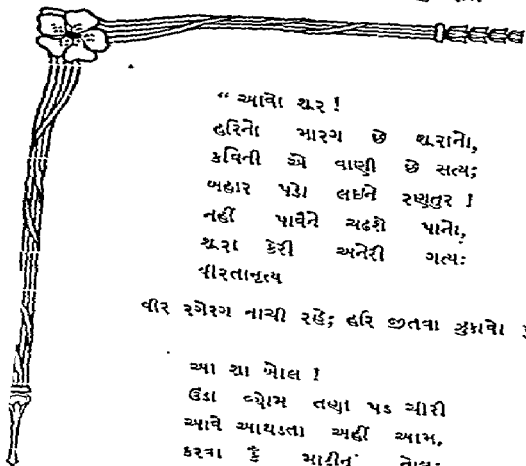 “ આવો શૂર !
હરિનો મારગ છે શૂરાનો,
કવિની એ વાણી છે સત્ય;
બહાર પડો લઇને રણતુર !
નહીં પાવૈને ચઢશે પાનો,
શૂરા કેરી અનેરી ગત્ય:
વીરતાનૃત્ય
વીર રગેરગ નાચી રહે; હરિ જીતવા ઝુકાવો
આ શા બોલ !
ઉંડા વ્યોમ તણા પડ ચીરી
આવે આથડતા અહીં આમ,
કરવા કે માટીનં તોલ: